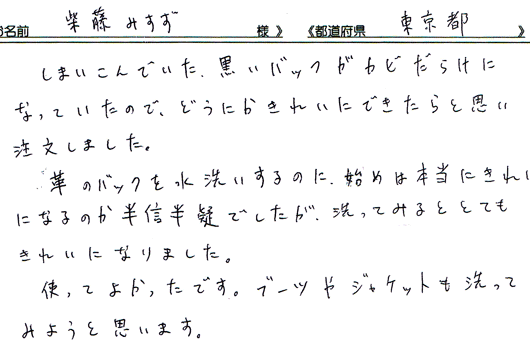 お名前 柴藤みすず 様 》 《都道府県 東京都 》
しまいこんでいた、黒いバックがカビだらけに
なっていたので、どうにかきれいにできたらと思い
注文しました。
革のバックを水洗いするのに、始めは本当にきれい
になるのか半信半疑でしたが、洗ってみるととても
きれいになりました。
使ってよかったです。ブーツやジャケットも洗って
みようと思います。